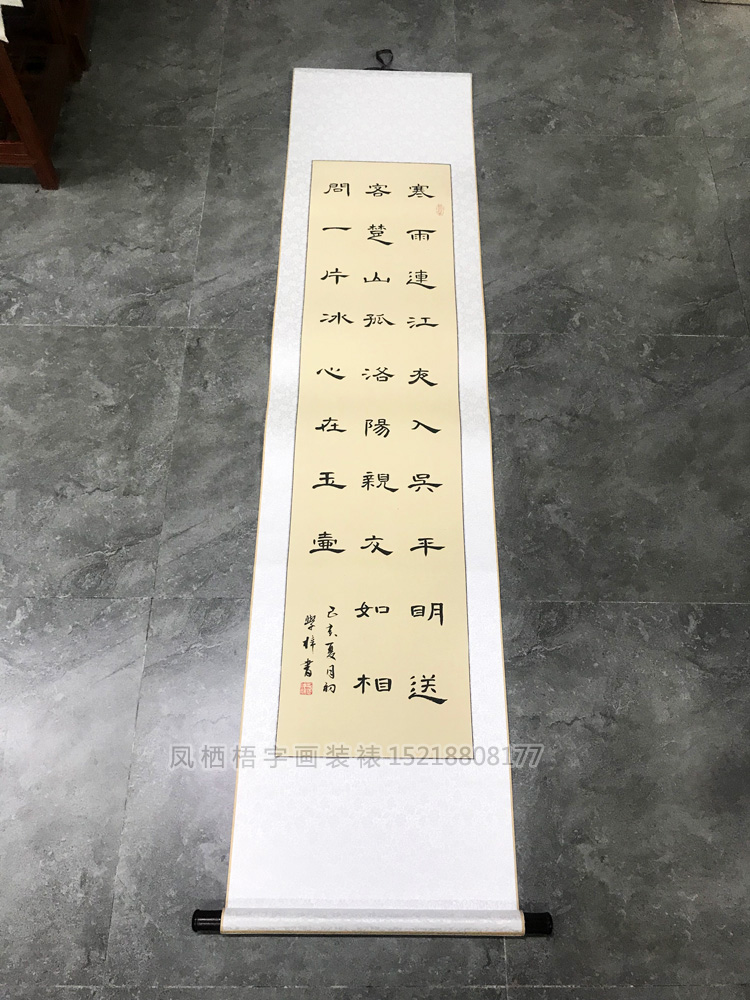 寒雨連江夜入吳平明送
客楚山孤洛陽親友如相
問一片冰心在玉壺
己亥夏月初
學梓書
凤栖梧字画装裱15218808177